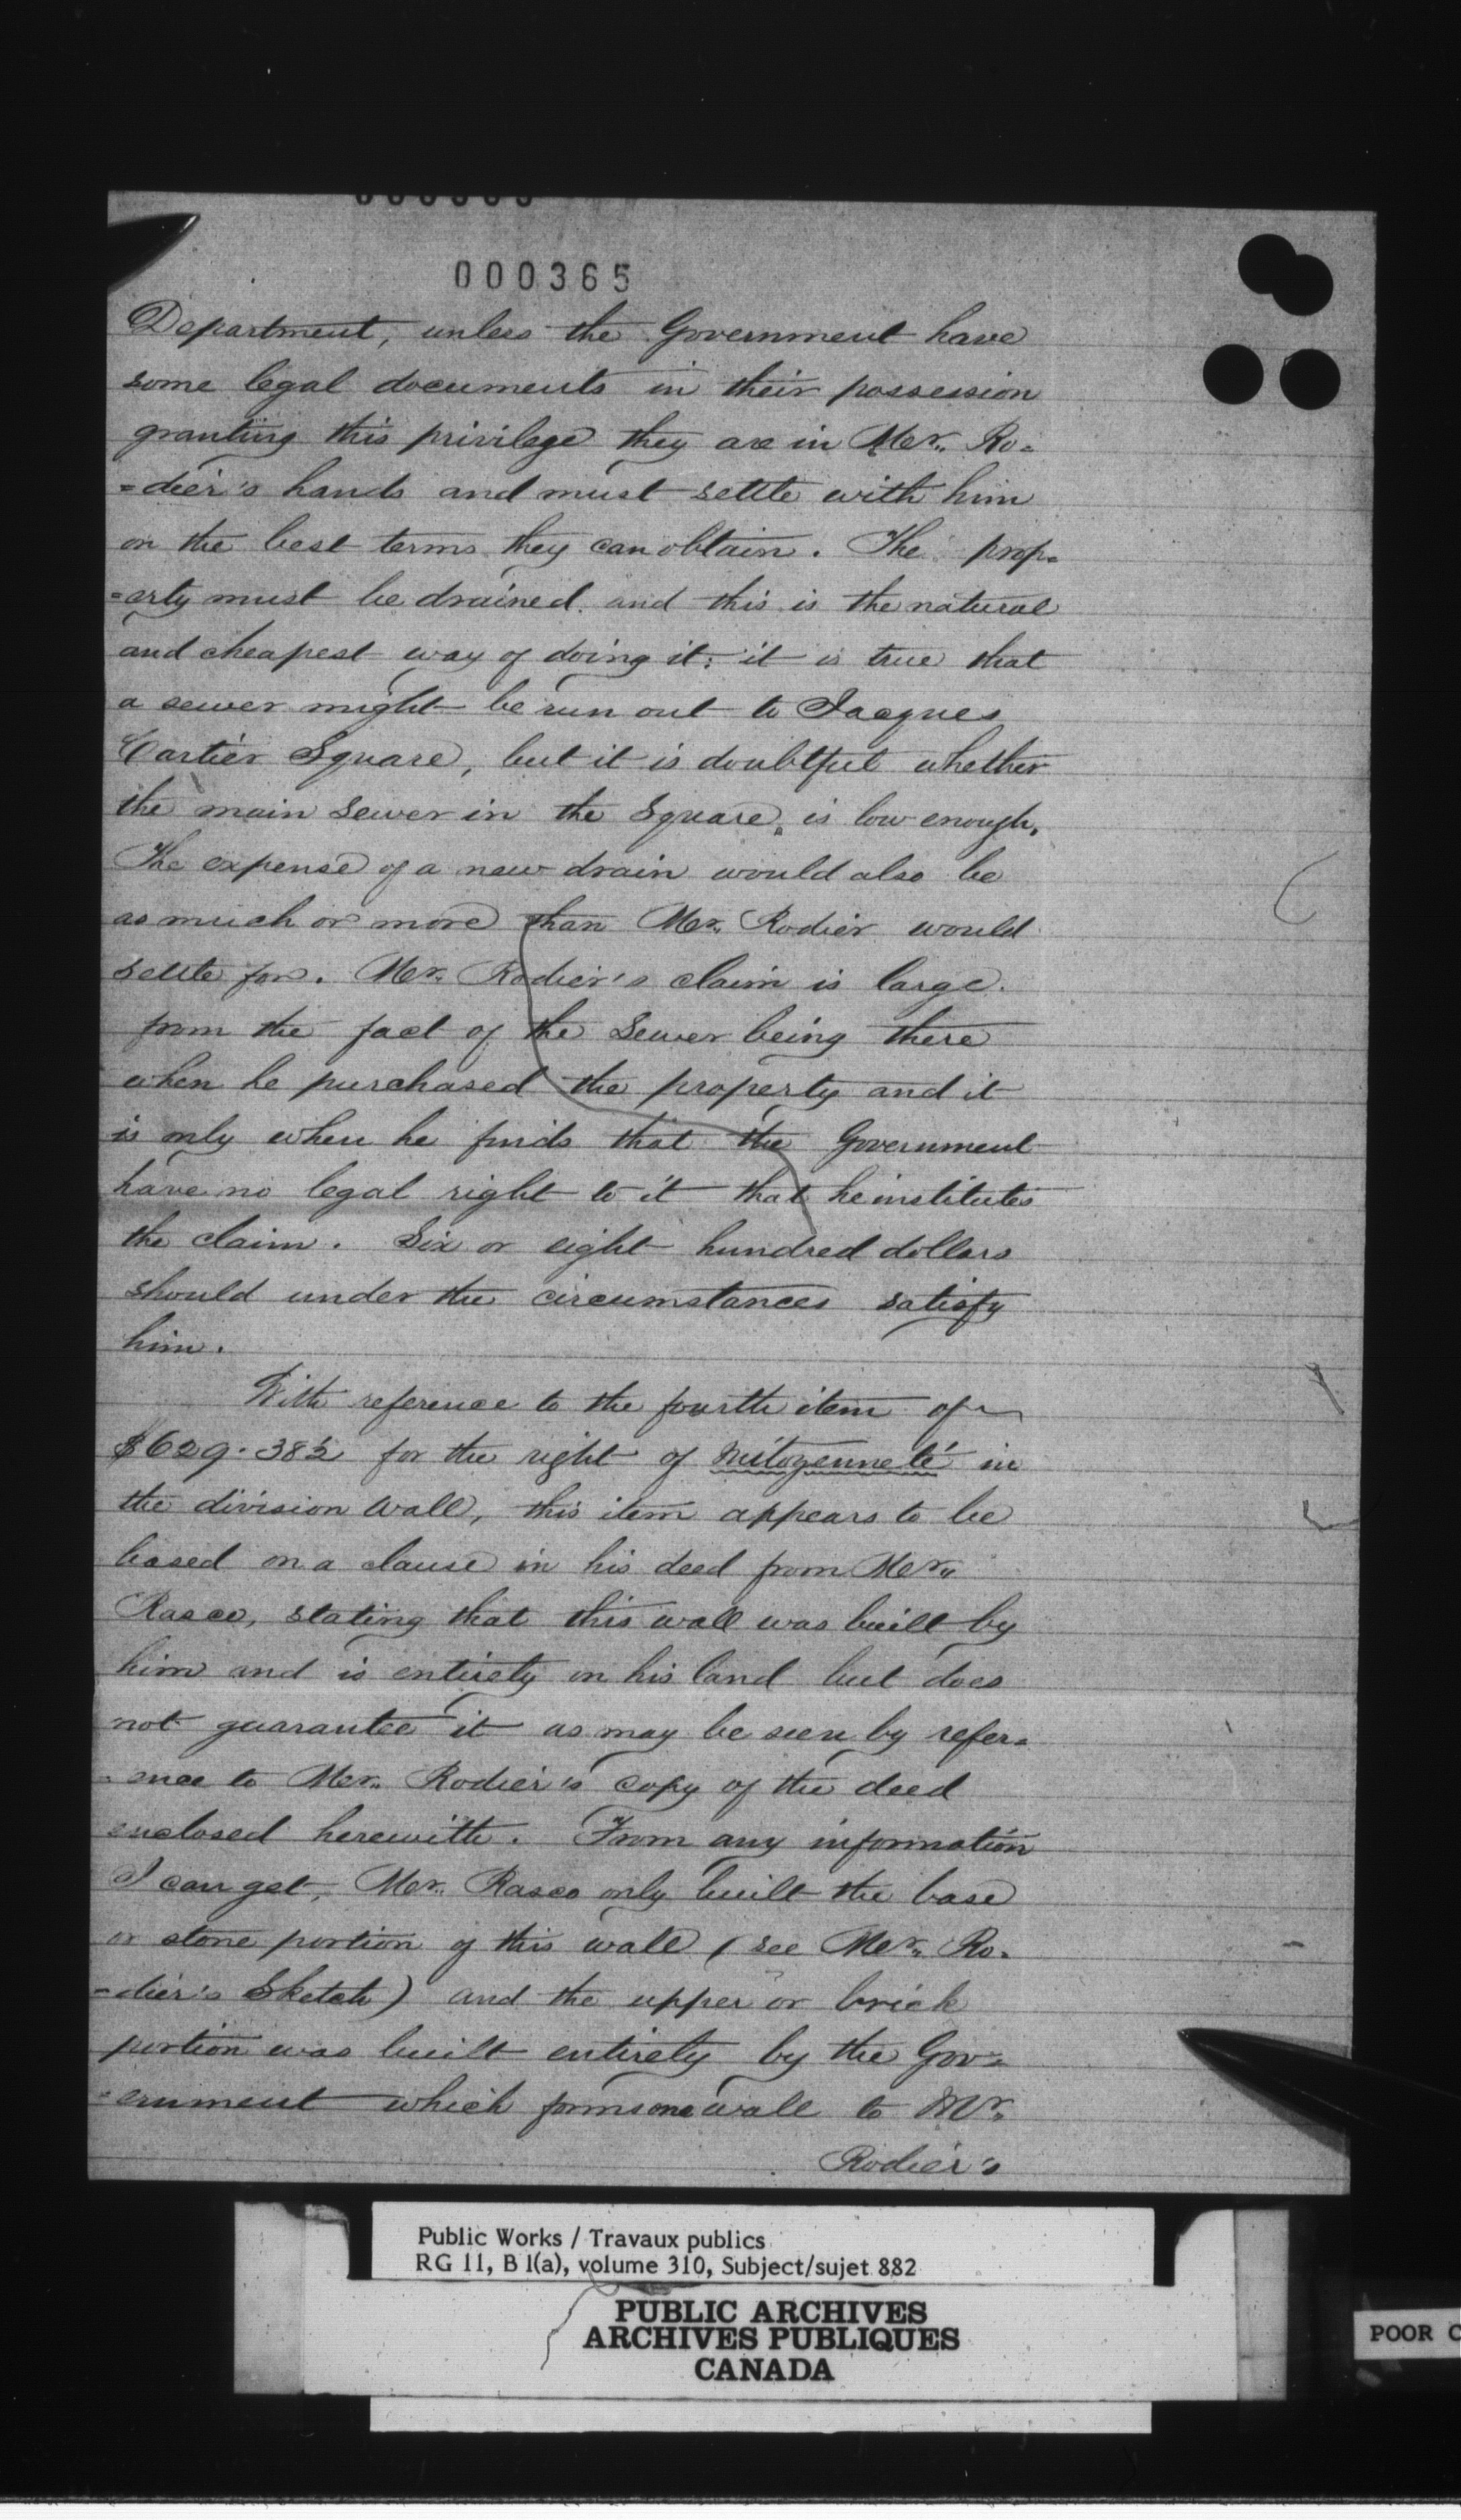 000365
Department, unless the Government have
some legal documents in their possession
granting this privilege they are in Mr. Ro=
=dier's hands and must settle with him
on the best terms they can obtain. The prop=
=erty must be drained and this is the natural
and cheapest way of doing it: it is true that
a sewer might be run out to Jacques
Cartier Square, but it is doubtful whether
the main sewer in the Square, is low enough.
The expense of a new drain would also be
as much or more than Mr. Rodier would
settle for. Mr. Rodier's claim is large.
from the fact of the sewer being there
when he purchased the property and it
is only when he finds that the Government
have no legal right to it that he institutes
the claim. Six or eight hundred dollars
should under the circumstances satisfy
him.
With reference to the fourth item of
$629.38½ for the right of mitoyenneté in
the division wall, this item appears to be
based on a clause in his deed from Mr.
Rasco, stating that this wall was built by
him and is entirely on his land but does
not guarantee it as may be seen by refer=
=ence to Mr. Rodier's copy of the deed
enclosed herewith. From any information
I can get, Mr. Rasco only built the base
or stone portion of this wall (see Mr. Ro=
=dier's Sketch) and the upper or brick
portion was built entirely by the Gov=
=ernment which forms one wall to Mr.
Rodier's
Public Works / Travaux publics
RG 11, B 1(a), volume 310, Subject/sujet 882
PUBLIC ARCHIVES
ARCHIVES PUBLIQUES
CANADA
POOR C